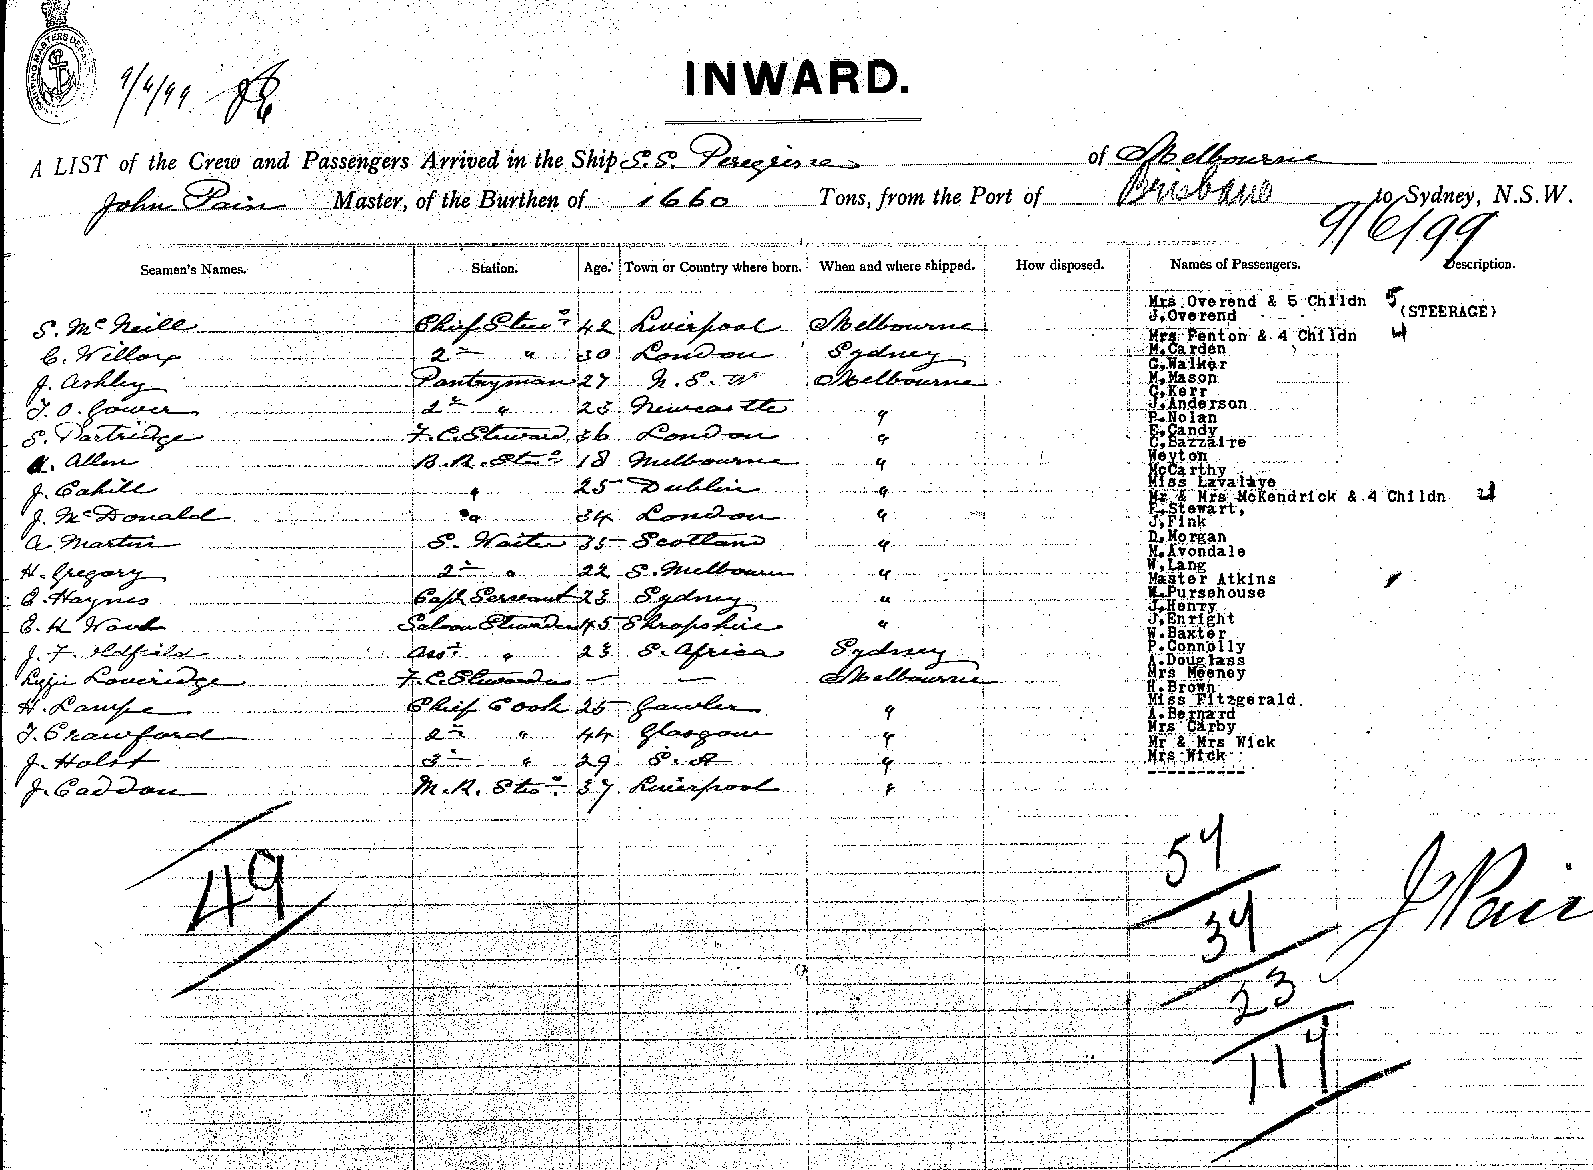 SHIPPING MASTERS DEPT
9/6/99
INWARD.
A LIST of the Crew and Passengers Arrived in the Ship S.S. Peregrine of Melbourne
John Pain Master, of the Burthen of 1660 Tons, from the Port of Brisbane to Sydney, N.S.W.
9/6/99
Seamen's Names. Station. Age. Town or Country where born. When and where shipped. How disposed. Names of Passengers. Description.
S. McNeill Chief Stewd 42 Liverpool Melbourne
C. Willox 2nd " 30 London Sydney
J. Ashley Pantryman 27 N.S.W Melbourne
T. O. Gower 2nd " 23 Newcastle "
S. Partridge F.C. Steward 36 London "
A. Allen B.R. Stewd 18 Melbourne "
J. Cahill " 25 Dublin "
J. McDonald " 34 London "
A. Martin S. Waiter 35 Scotland "
H. Gregory 2nd " 22 S. Melbourne "
C. Haynes Capt Servant 23 Sydney "
E. H. Ward Saloon Stewardess 45 Shropshire "
J. F. Oldfield Asst " 23 S. Africa Sydney
Lizzie Loveridge F.C. Stewardess — — Melbourne
H. Lampe Chief Cook 25 Gawler "
T. Crawford 2nd " 44 Glasgow "
J. Holst 3rd " 29 S.A "
J. Caddon M.R. Stewd 37 Liverpool "
Mrs Overend & 5 Childn 5
J.Overend (STEERAGE)
Mrs Fenton & 4 Childn 4
M.Carden
C.Walker
M.Mason
C.Kerr
J.Anderson
P.Nolan
E.Candy
C.Bazzaire
Weyton
McCarthy
Miss Lavalaye
Mr & Mrs McKendrick & 4 Childn 4
E.Stewart,
J.Fink
D.Morgan
M.Avondale
W.Lang
Master Atkins 1
W.Pursehouse
J.Henry
J.Enright
W.Baxter
P.Connolly
A.Douglass
Mrs Meeney
H.Brown
Miss Fitzgerald.
A.Bernard
Mrs Carby
Mr & Mrs Wick
Mrs Wick
----------
49
54
34
23
114
J Pain